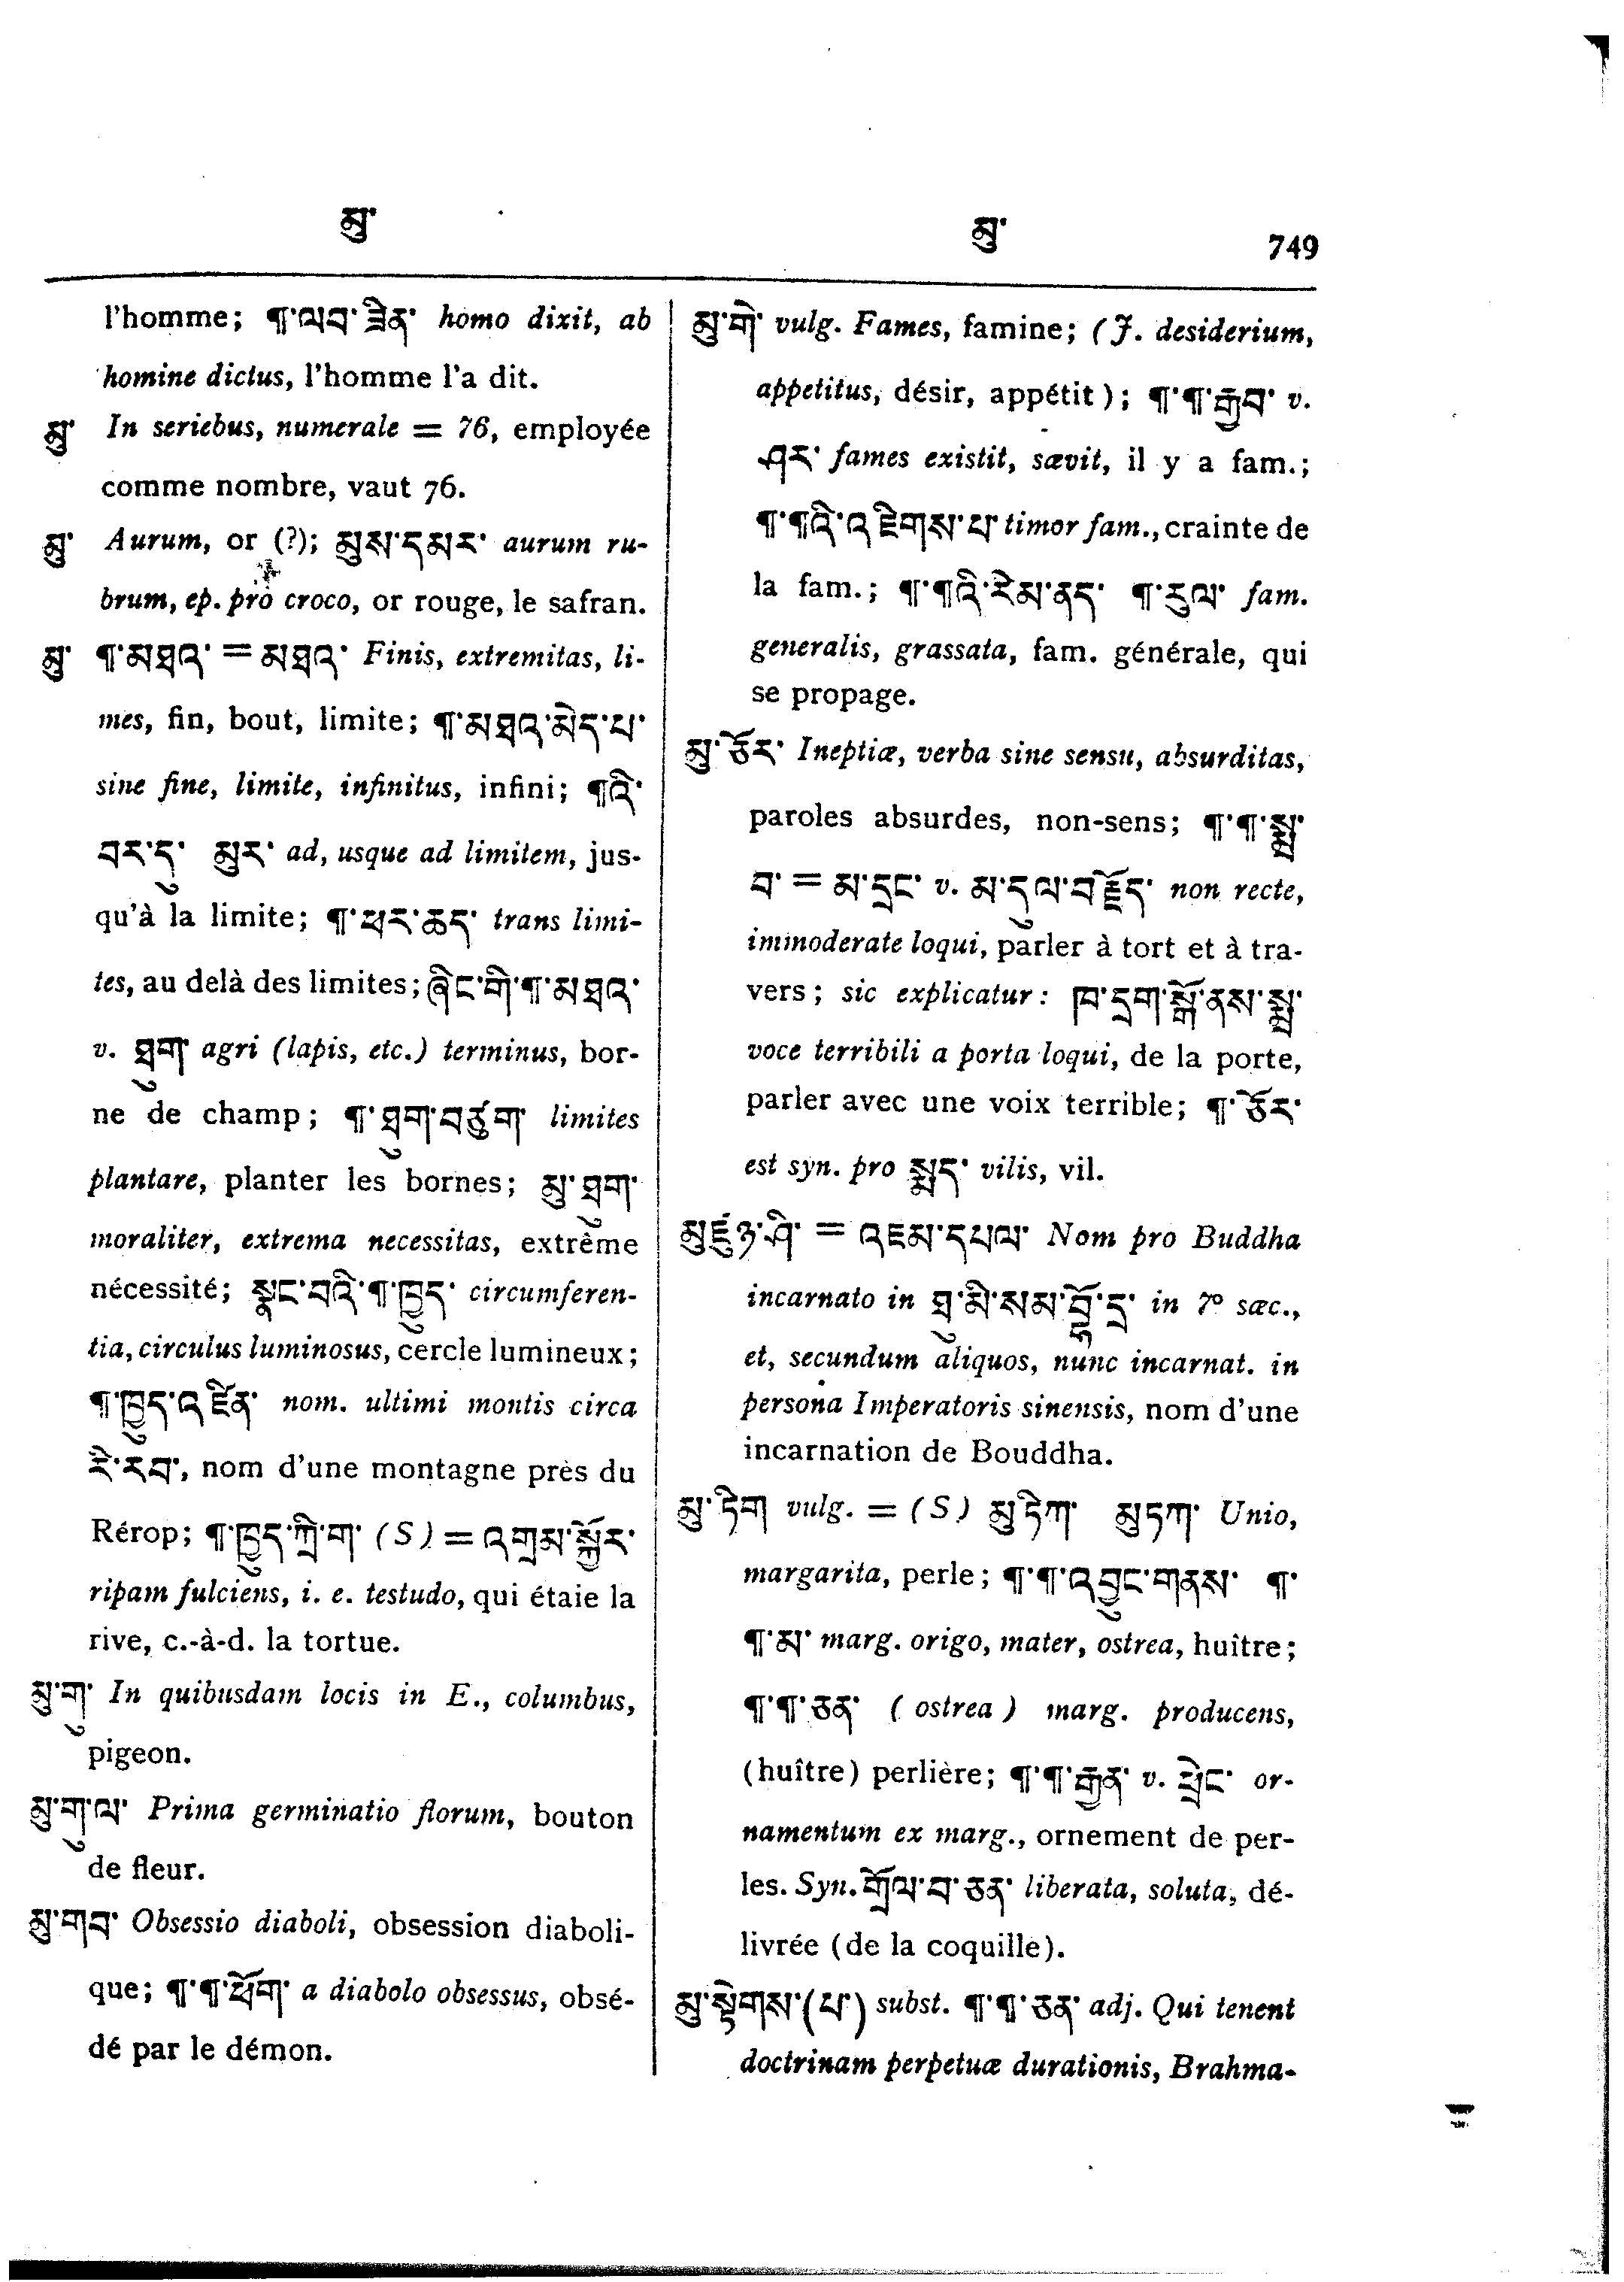 མུ་
མུ་
749
l'homme; ¶་ལབ་ཟིན་ homo dixit, ab
homine dictus, l'homme l'a dit.
མུ་ In seriebus, numerale = 76, employée
comme nombre, vaut 76.
མུ་ Aurum, or (?); མུས་དམར་ aurum ru-
brum, ep. pro croco, or rouge, le safran.
མུ་ ¶་མཐའ་ = མཐའ་ Finis, extremitas, li-
mes, fin, bout, limite; ¶་མཐའ་མེད་པ་
sine fine, limite, infinitus, infini; ¶འི་
བར་དུ་ མུར་ ad, usque ad limitem, jus-
qu'à la limite; ¶་ཕར་ཆད་ trans limi-
tes, au delà des limites; ཞིང་གི་¶་མཐའ་
v. ཐུག་ agri (lapis, etc.) terminus, bor-
ne de champ; ¶་ཐུག་བཙུག་ limites
plantare, planter les bornes; མུ་ཐུག་
moraliter, extrema necessitas, extrême
nécessité; སྣང་བའི་¶་ཁྱུད་ circumferen-
tia, circulus luminosus, cercle lumineux;
¶་ཁྱུད་འཛིན་ nom. ultimi montis circa
རི་རབ་, nom d'une montagne près du
Rérop; ¶་ཁྱུད་ཀྲི་ག་ (S) = འགྲམ་སྐྱོར་
ripam fulciens, i. e. testudo, qui étaie la
rive, c.-à-d. la tortue.
མུ་གུ་ In quibusdam locis in E., columbus,
pigeon.
མུ་གུ་ལ་ Prima germinatio florum, bouton
de fleur.
མུ་གབ་ Obsessio diaboli, obsession diaboli-
que; ¶་¶་ཕོག་ a diabolo obsessus, obsé-
dé par le démon.
མུ་གེ་ vulg. Fames, famine; (J. desiderium,
appetitus, désir, appétit); ¶་¶་རྒྱབ་ v.
ཤར་ fames existit, sævit, il y a fam.;
¶་¶འི་འཇིགས་པ་ timor fam., crainte de
la fam.; ¶་¶འི་རིམ་ནད་ ¶་རུལ་ fam.
generalis, grassata, fam. générale, qui
se propage.
མུ་ཅོར་ Ineptiæ, verba sine sensu, absurditas,
paroles absurdes, non-sens; ¶་¶་སྨྲ་
བ་ = མ་དྲང་ v. མ་དུལ་བརྗོད་ non recte,
immoderate loqui, parler à tort et à tra-
vers; sic explicatur: ཁ་དྲག་སྒོ་ནས་སྨྲ་
voce terribili a porta loqui, de la porte,
parler avec une voix terrible; ¶་ཅོར་
est syn. pro སྨད་ vilis, vil.
མུཇུཉ་ཤི་ = འཇམ་དཔལ་ Nom pro Buddha
incarnato in ཐུ་མི་སམ་བྷོ་དྲ་ in 7º sæc.,
et, secundum aliquos, nunc incarnat. in
persona Imperatoris sinensis, nom d'une
incarnation de Bouddha.
མུ་ཏིག vulg. = (S) མུཏིཀ་ མུཏཀ་ Unio,
margarita, perle; ¶་¶་འབྱུང་གནས་ ¶་
¶་མ་ marg. origo, mater, ostrea, huître;
¶་¶་ཅན་ (ostrea) marg. producens,
(huître) perlière; ¶་¶་རྒྱན་ v. ཕྲེང་ or-
namentum ex marg., ornement de per-
les. Syn. གྲོལ་བ་ཅན་ liberata, soluta, dé-
livrée (de la coquille).
མུ་སྟེགས་(པ་) subst. ¶་¶་ཅན་ adj. Qui tenent
doctrinam perpetuæ durationis, Brahma-